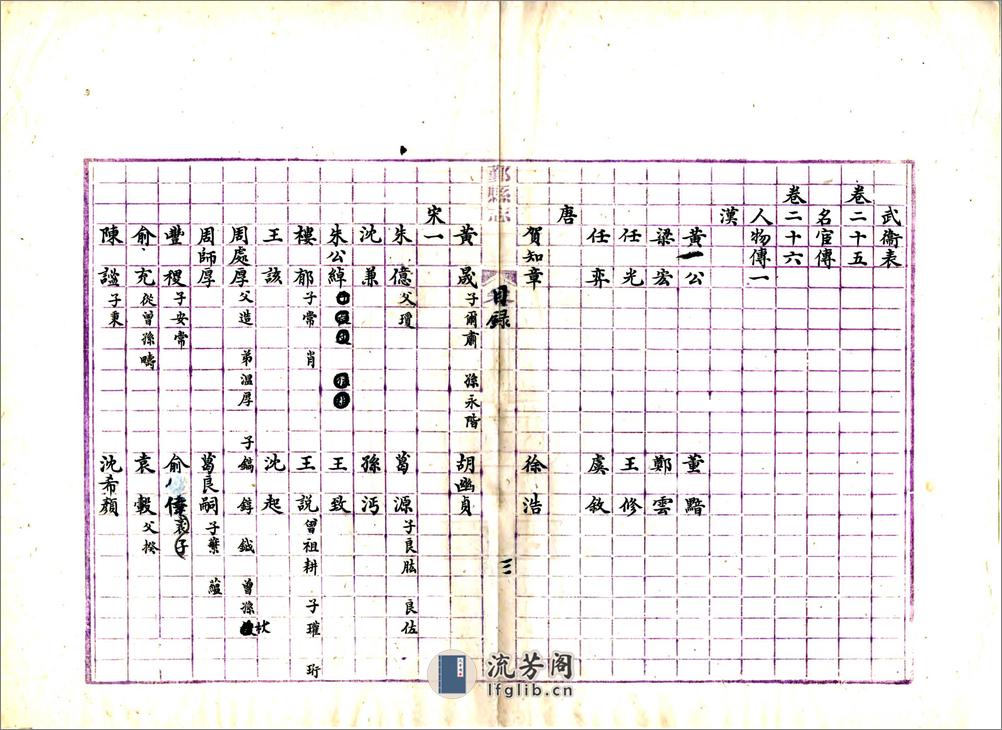 武衛表
卷二十五
名宦傳
卷二十六
人物傳一
漢
黃公 董黯
梁宏 鄭雲
任光 王修
任奕 虞敘
唐
賀知章 徐浩
鄞縣志 目錄 三
黃晟 子爾肅 孫永階 胡幽貞
宋一
朱億 父瓊 葛源 子良肱 良佐
沈兼 孫沔
朱公綽 王致
樓郁 子常 肖 王説 曾祖耕 子瓘 珩
王該 沈起
周處厚 父造 弟溫厚 子鍔 錞 鉞 曾孫
周師厚 葛良嗣 子蘩 蘊
豐稷 子安常 俞偉
俞充 從曾孫疇 袁轂 父揆
陳謐 子秉 沈希顏
流芳阁
lfglib.cn